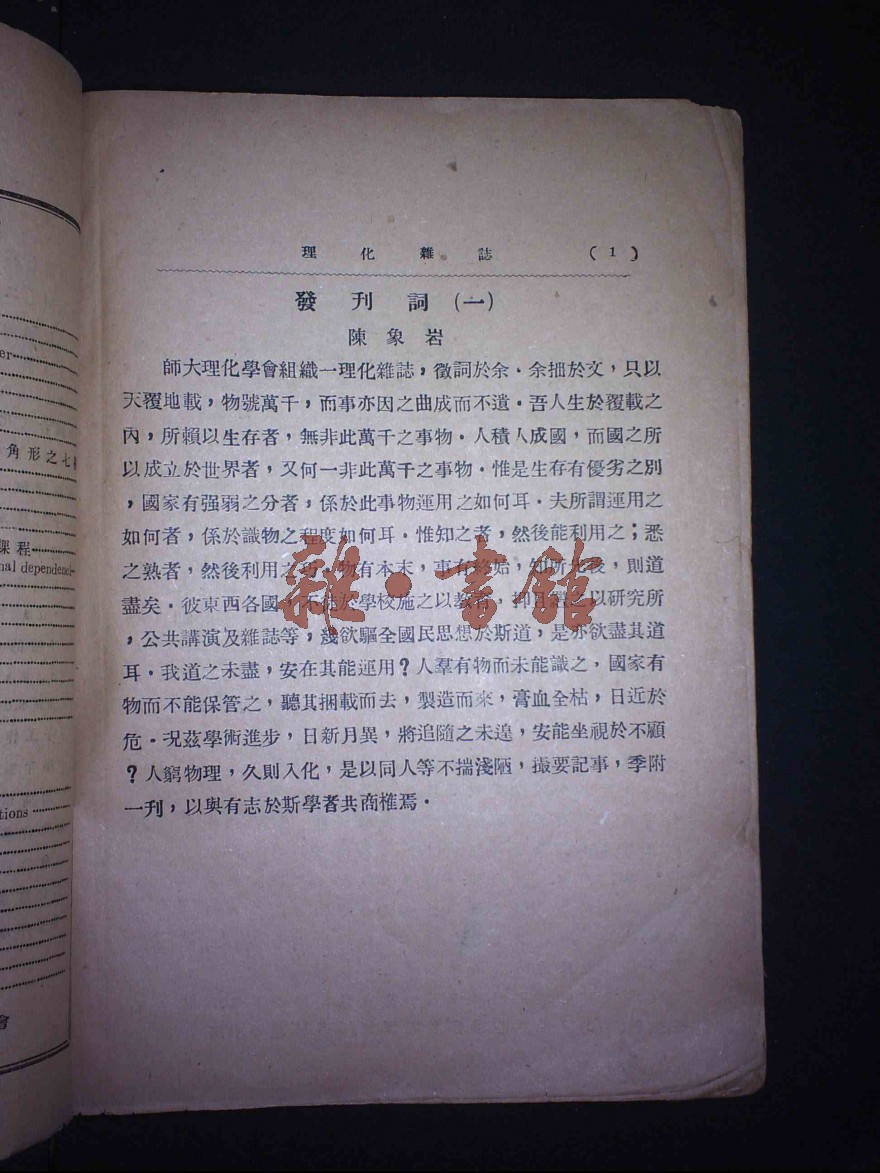 er
角形之七
課程
nal dependenci
tions
會
理化雜誌 (1)
發刊詞(一)
陳象岩
師大理化學會組織一理化雜誌，徵詞於余．余拙於文，只以
天覆地載，物號萬千，而事亦因之曲成而不遺．吾人生於覆載之
內，所賴以生存者，無非此萬千之事物．人積人成國，而國之所
以成立於世界者，又何一非此萬千之事物．惟是生存有優劣之別
，國家有强弱之分者，係於此事物運用之如何耳．夫所謂運用之
如何者，係於識物之程度如何耳．惟知之者，然後能利用之；悉
之熟者，然後利用之巧．物有本末，事有終始，知所先後，則道
盡矣．彼東西各國，不徒於學校施之以教育，抑且繼之以研究所
，公共講演及雜誌等，幾欲驅全國民思想於斯道，是亦欲盡其道
耳．我道之未盡，安在其能運用？人羣有物而未能識之，國家有
物而不能保管之，聽其捆載而去，製造而來，膏血全枯，日近於
危．況茲學術進步，日新月異，將追隨之未遑，安能坐視於不顧
？人窮物理，久則入化，是以同人等不揣淺陋，撮要記事，季附
一刋，以與有志於斯學者共商榷焉．
雜·書館